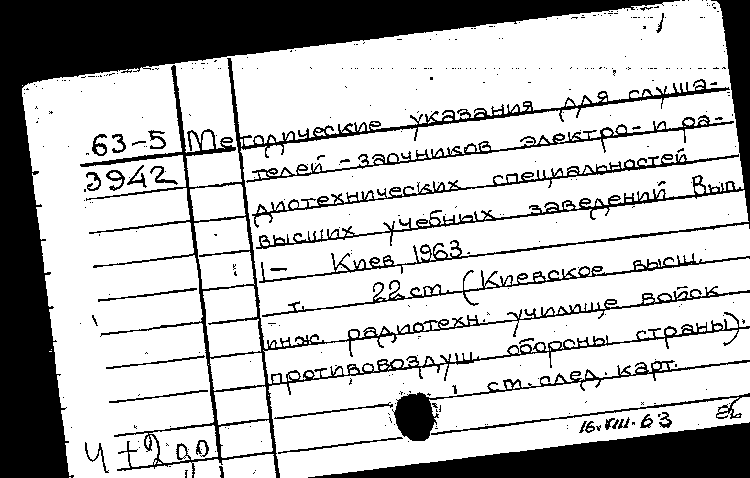 63-5 Методические указания для слуша-
3942 телей - заочников электро- и ра-
диотехнических специальностей
высших учебных заведений Вып.
1- Киев, 1963.
т. 22 см. (Киевское высш.
инж. радиотехн. училище войск
противовоздуш. обороны страны).
см. след. карт.
16.VIII.63
4 + 2 до